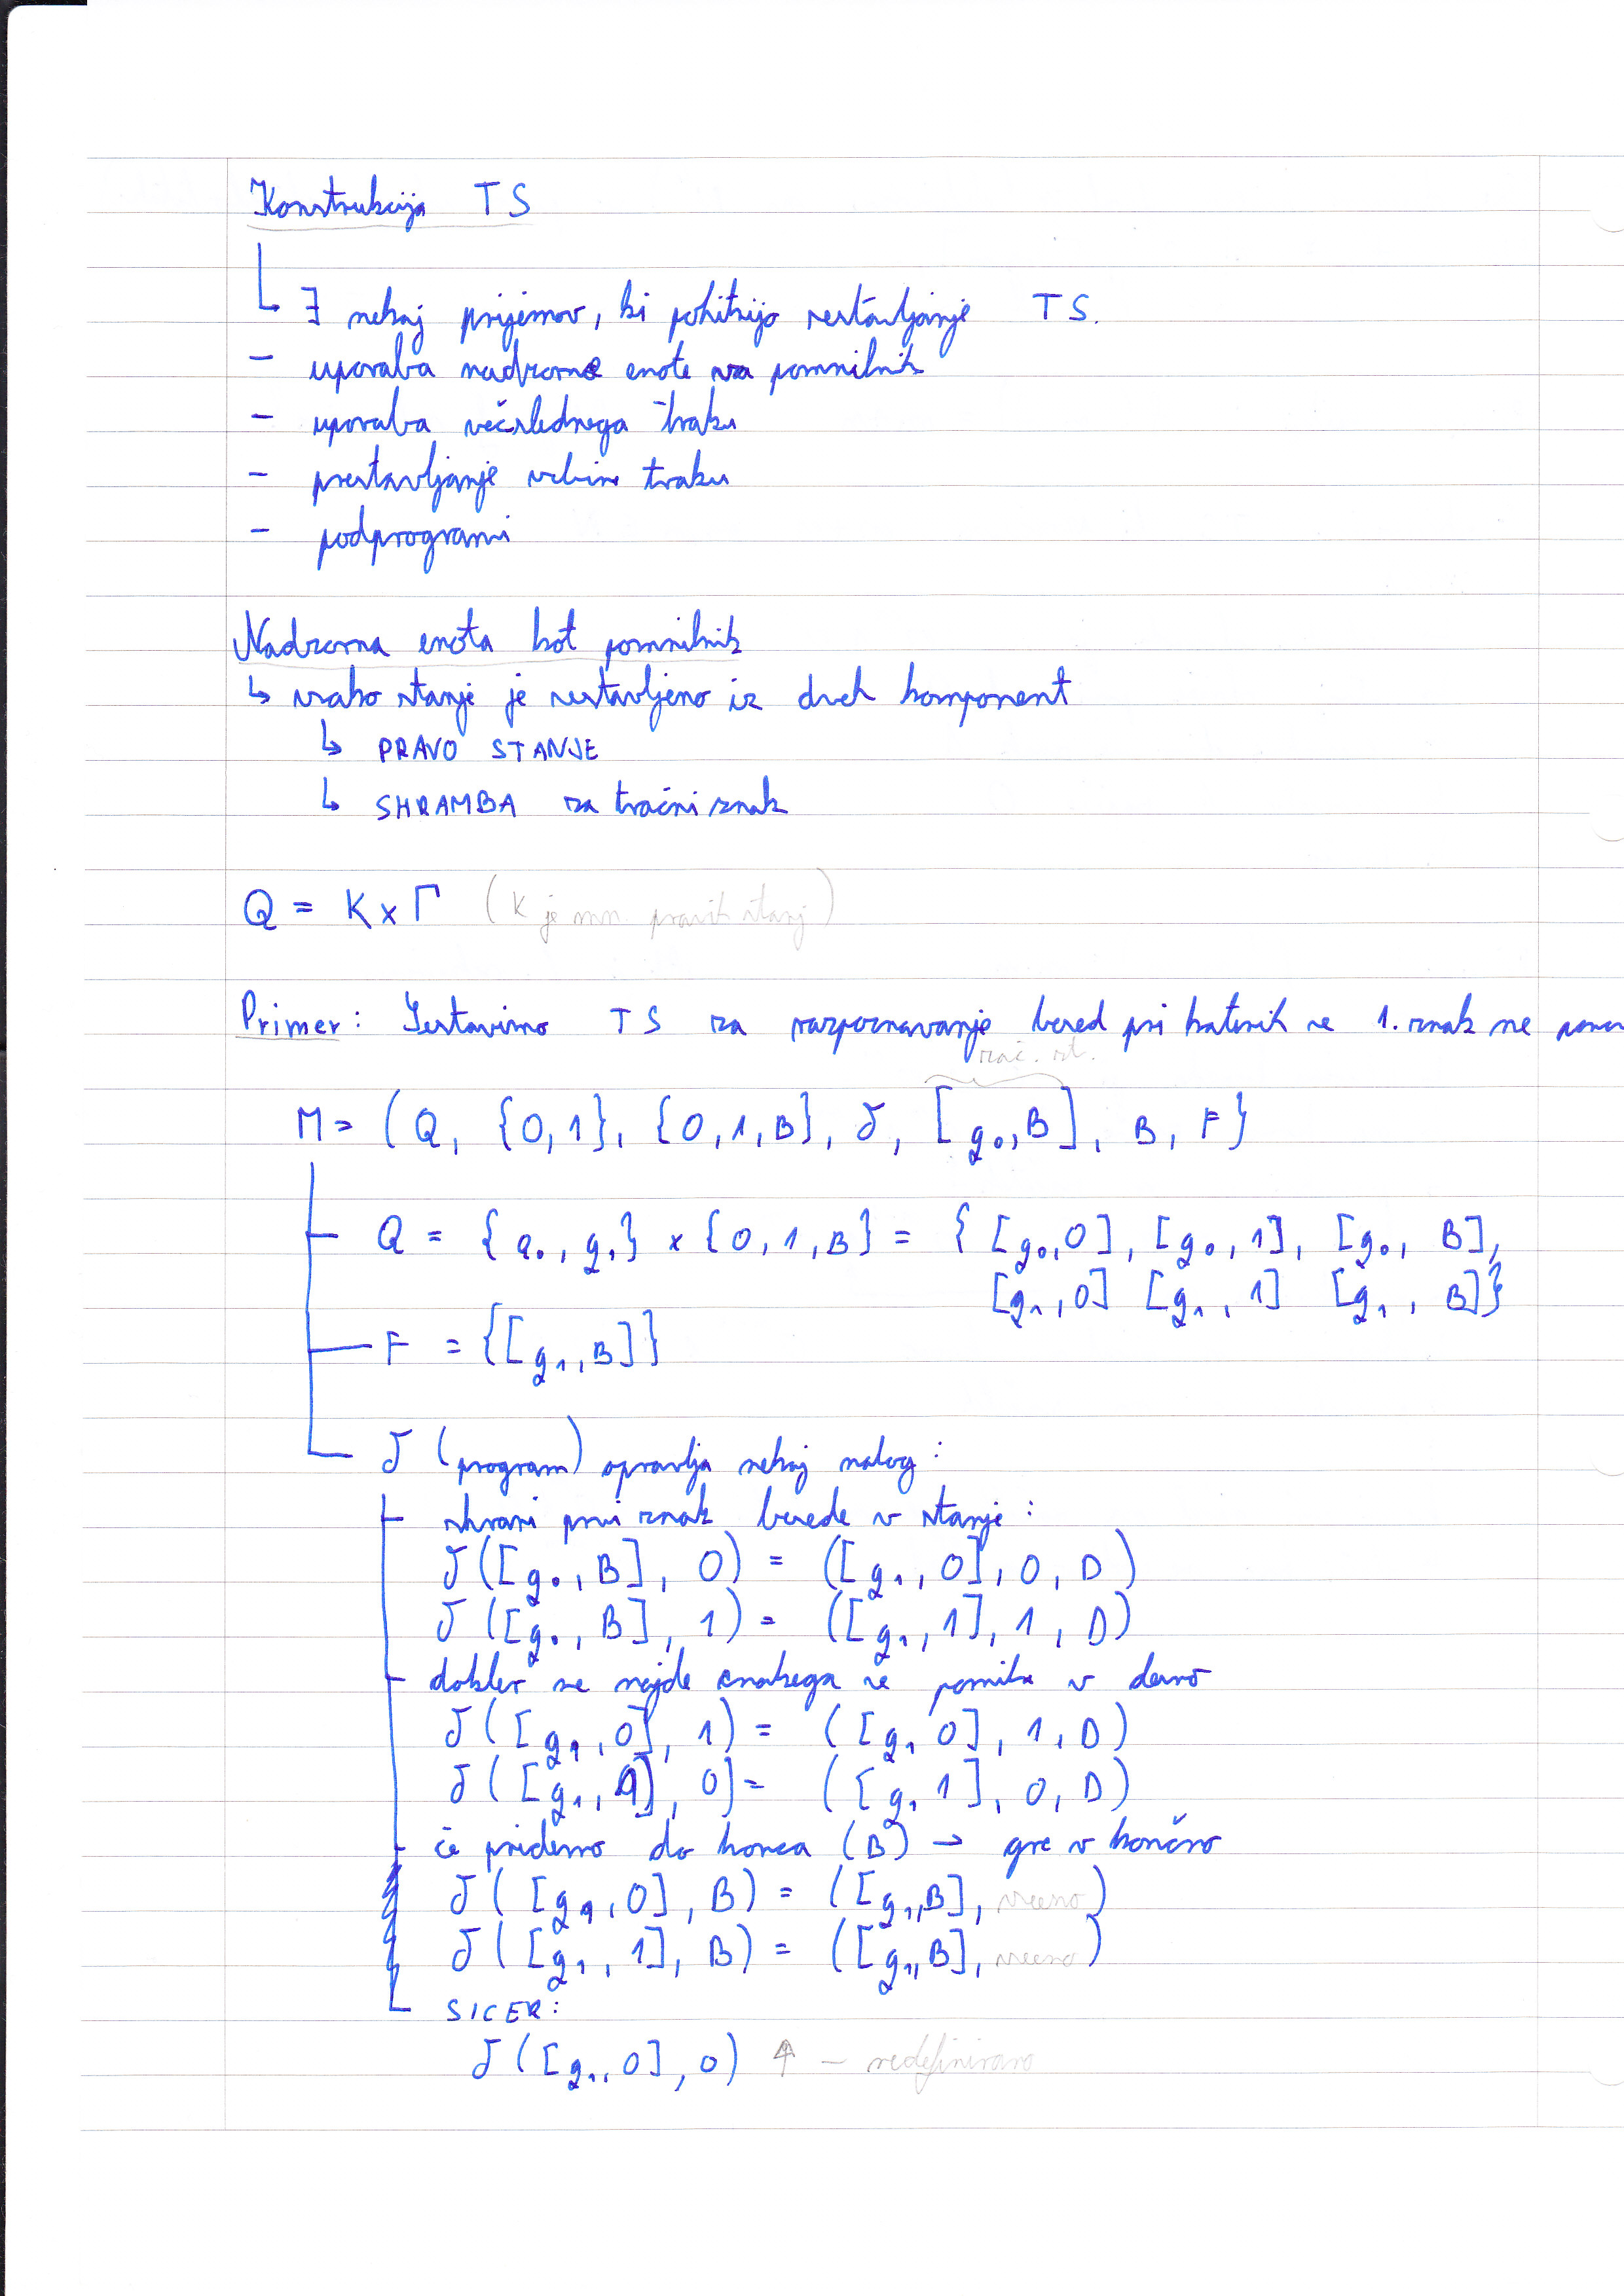 Konstrukcija TS
↳ ∃ nekaj prijemov, ki pohitrijo sestavljanje TS.
- uporaba nadzorne enote za pomnilnik
- uporaba večslednega traku
- prestavljanje vsebine traku
- podprogrami
Nadzorna enota kot pomnilnik
↳ vsako stanje je sestavljeno iz dveh komponent
↳ PRAVO STANJE
↳ SHRAMBA za tračni znak
Q = K × Γ (K je mn. pravih stanj)
Primer: Sestavimo TS za razpoznavanje besed pri katerih se 1. znak ne
zač. st.
M = (Q, {0,1}, {0,1,B}, δ, [q₀,B], B, F}
Q = {q₀, q₁} × {0,1,B} = { [q₀,0], [q₀,1], [q₀, B],
[q₁,0] [q₁,1] [q₁, B]}
F = {[q₁,B]}
δ (program) opravlja nekaj nalog:
shrani prvi znak besede v stanje:
δ([q₀,B], 0) = ([q₁,0],0,D)
δ([q₀,B], 1) = ([q₁,1],1,D)
dokler ne najde enakega se pomika v desno
δ([q₁,0], 1) = ([q₁ 0],1,D)
δ([q₁,1], 0) = ([q₁ 1],0,D)
če pridemo do konca (B) → gre v končno
δ([q₁,0], B) = ([q₁,B], vseeno)
δ([q₁,1], B) = ([q₁,B], vseeno)
SICER:
δ([q₁,0],0) ↑ - nedefinirano